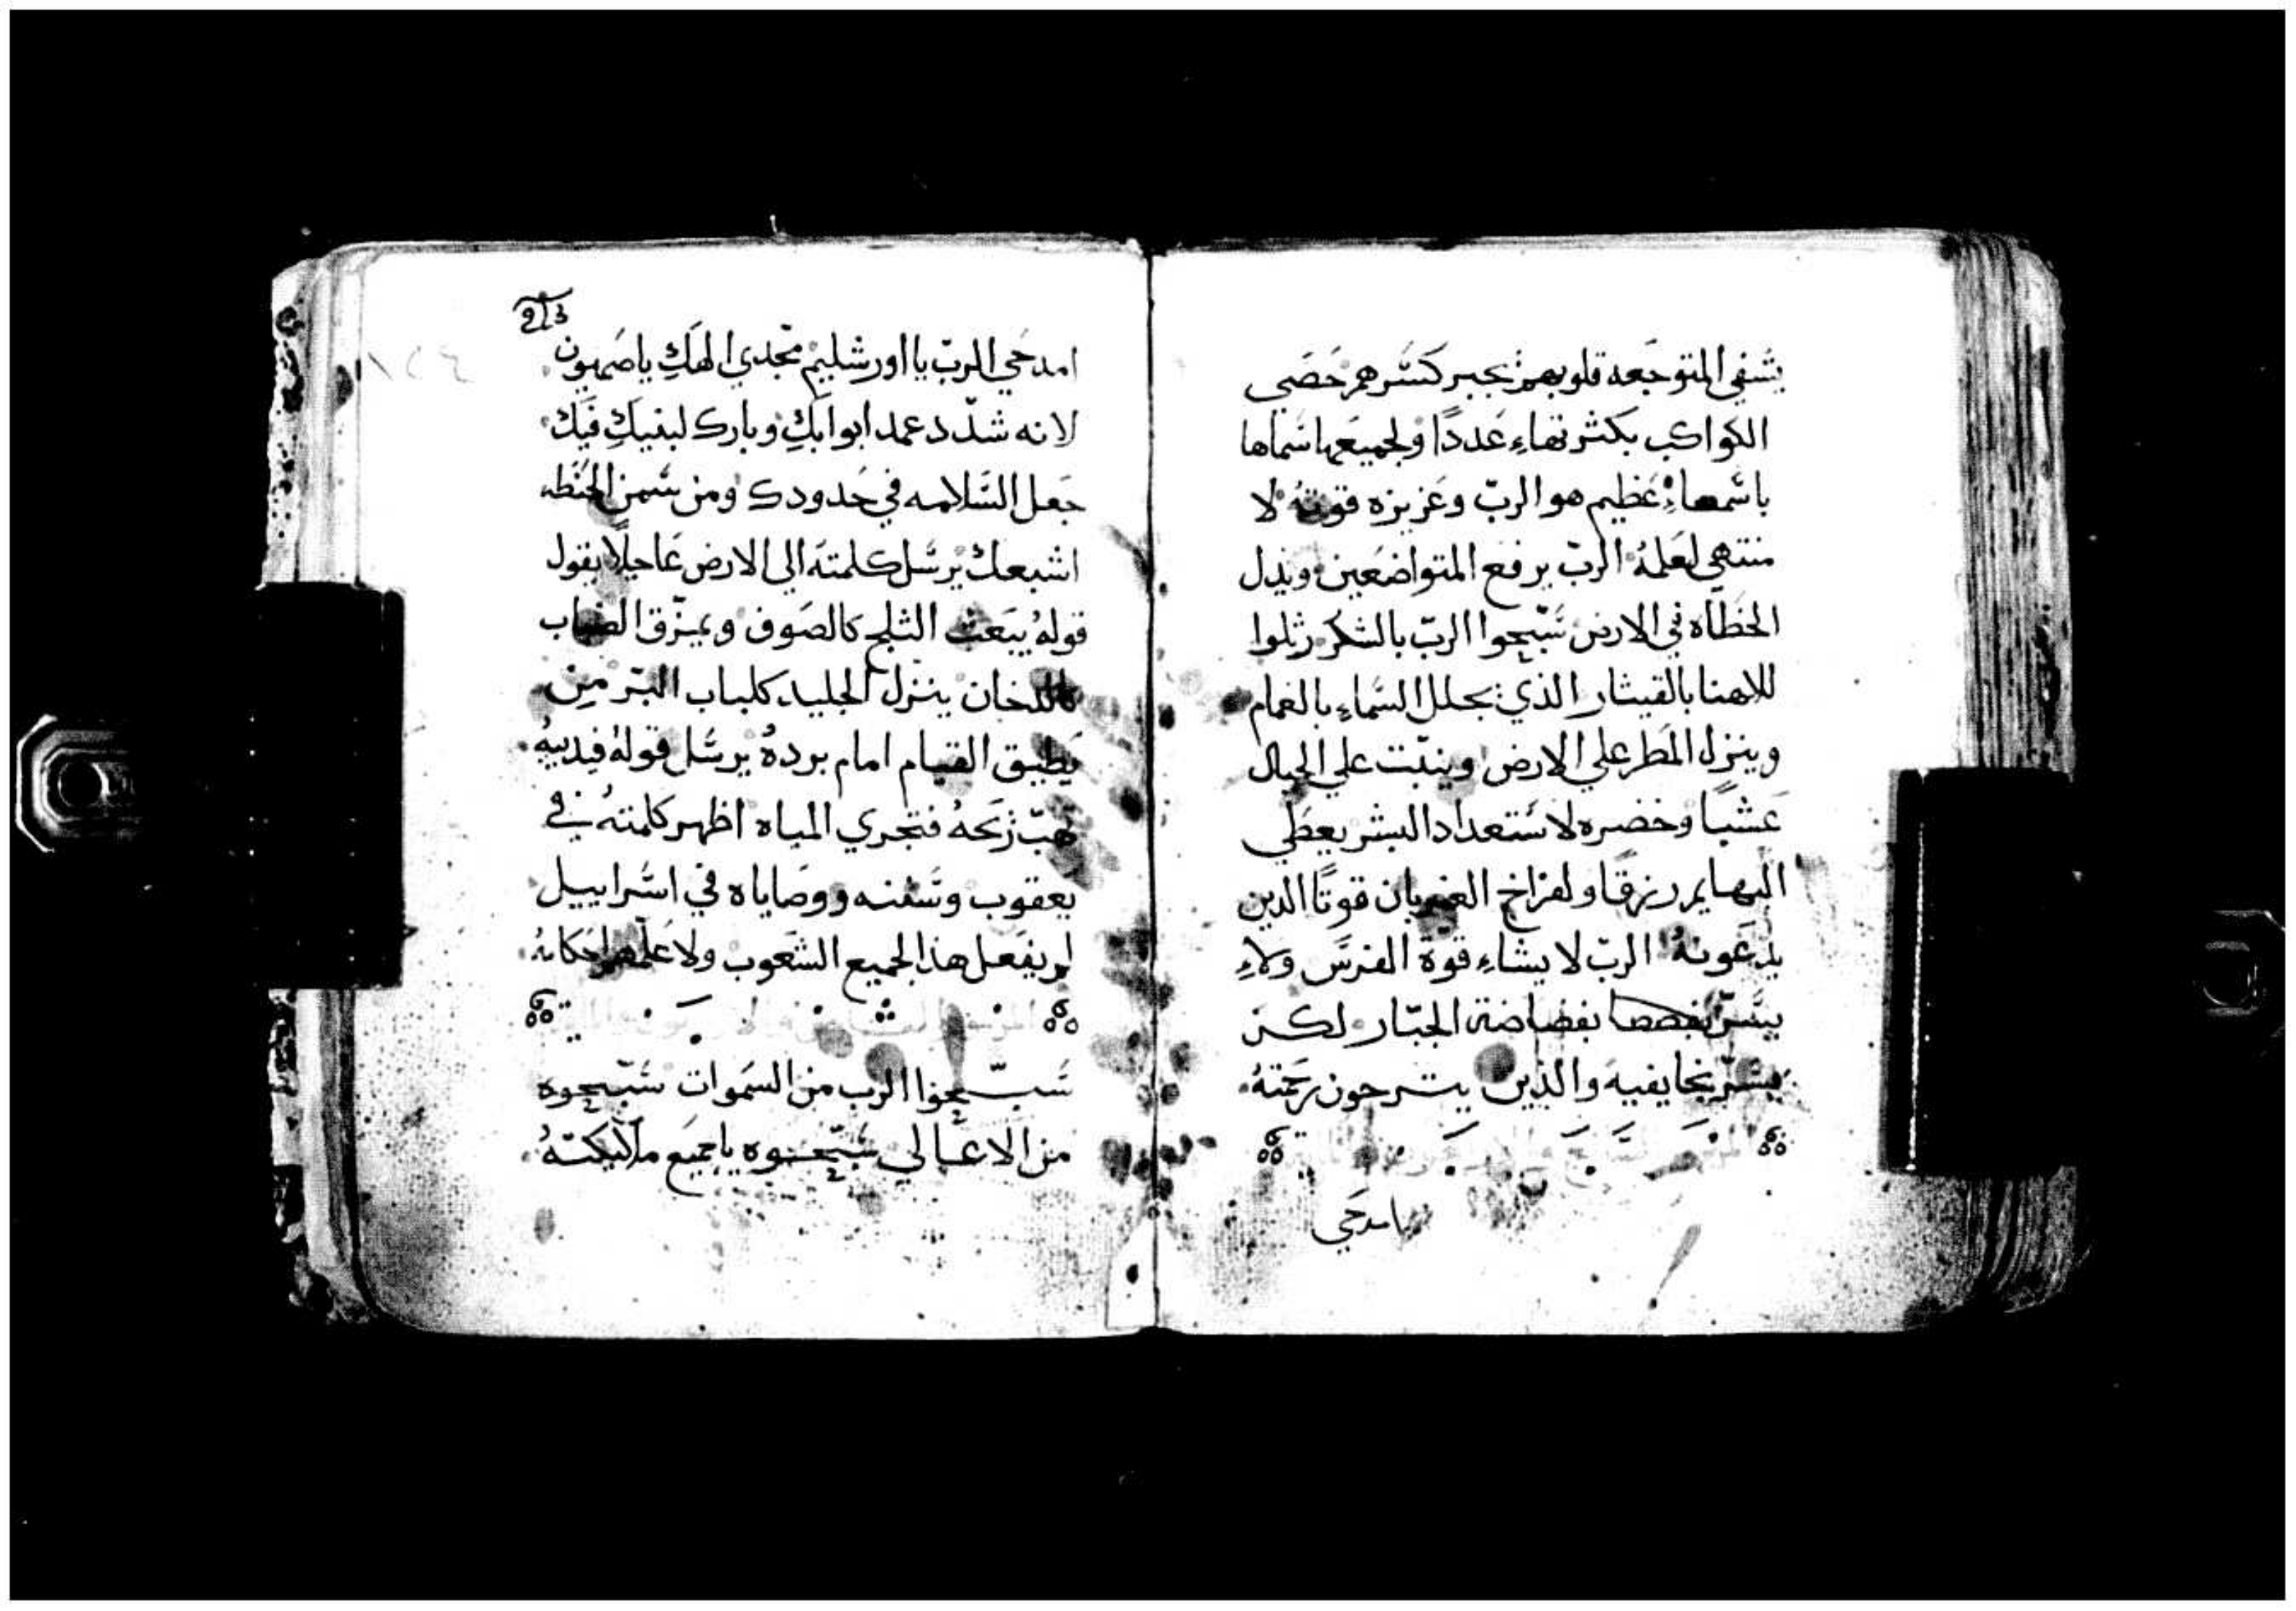 يشفي المتوجعه قلوبهم يجبر كسرهم حصي
الكواكب بكثرتهاء عددًا ولجميعها سماها
باسمهاء عظيم هو الربّ وعزيزه قوته لا
منتهي لعلمهُ الربّ يرفع المتواضعين ويذل
الخطاه في الارض سبّحوا الربّ بالشكر رتلوا
للاهنا بالقيثار الذي يجلل السماء بالغمام
وينزل المطر علي الارض وينبّت علي الجبال
عشبًا وخضره لاستعداد البشر يعطي
البهايم رزقًا ولفراخ الغربان قوتًا الذين
يدعونهُ الربّ لا يشاء قوة الفرس ولاء
يسرّ بفضاضة الجبّار لكن
يسرّ بخايفيه والذين يترجون رحمتهُ
امدحي
213
١٢٤
امدحي الربّ يا اورشليم مجّدي الهكِ يا صهيون
لانه شدّد عمد ابوابكِ وبارك لبنيكِ فيكِ
جعل السّلامه في حدودك ومن سمن الحنطه
اشبعك يرسل كلمته الي الارض عاجلًا يقول
قولهُ يبعث الثلج كالصوف ويمزّق الضباب
كالدخان ينزل الجليد كلباب البّر من
يطيق القيام امام بردهُ يرسل قولهُ فيديبهُ
تهبّ ريحهُ فتجري المياه اظهر كلمتهُ في
يعقوب وسننه ووصاياه في اسراييل
لم يفعل هذا لجميع الشعوب ولا علّمهم احكامهُ
سبّحوا الرب من السموات سبّحوه
من الاعالي سبّحوه يا جميع ملايكتهُ